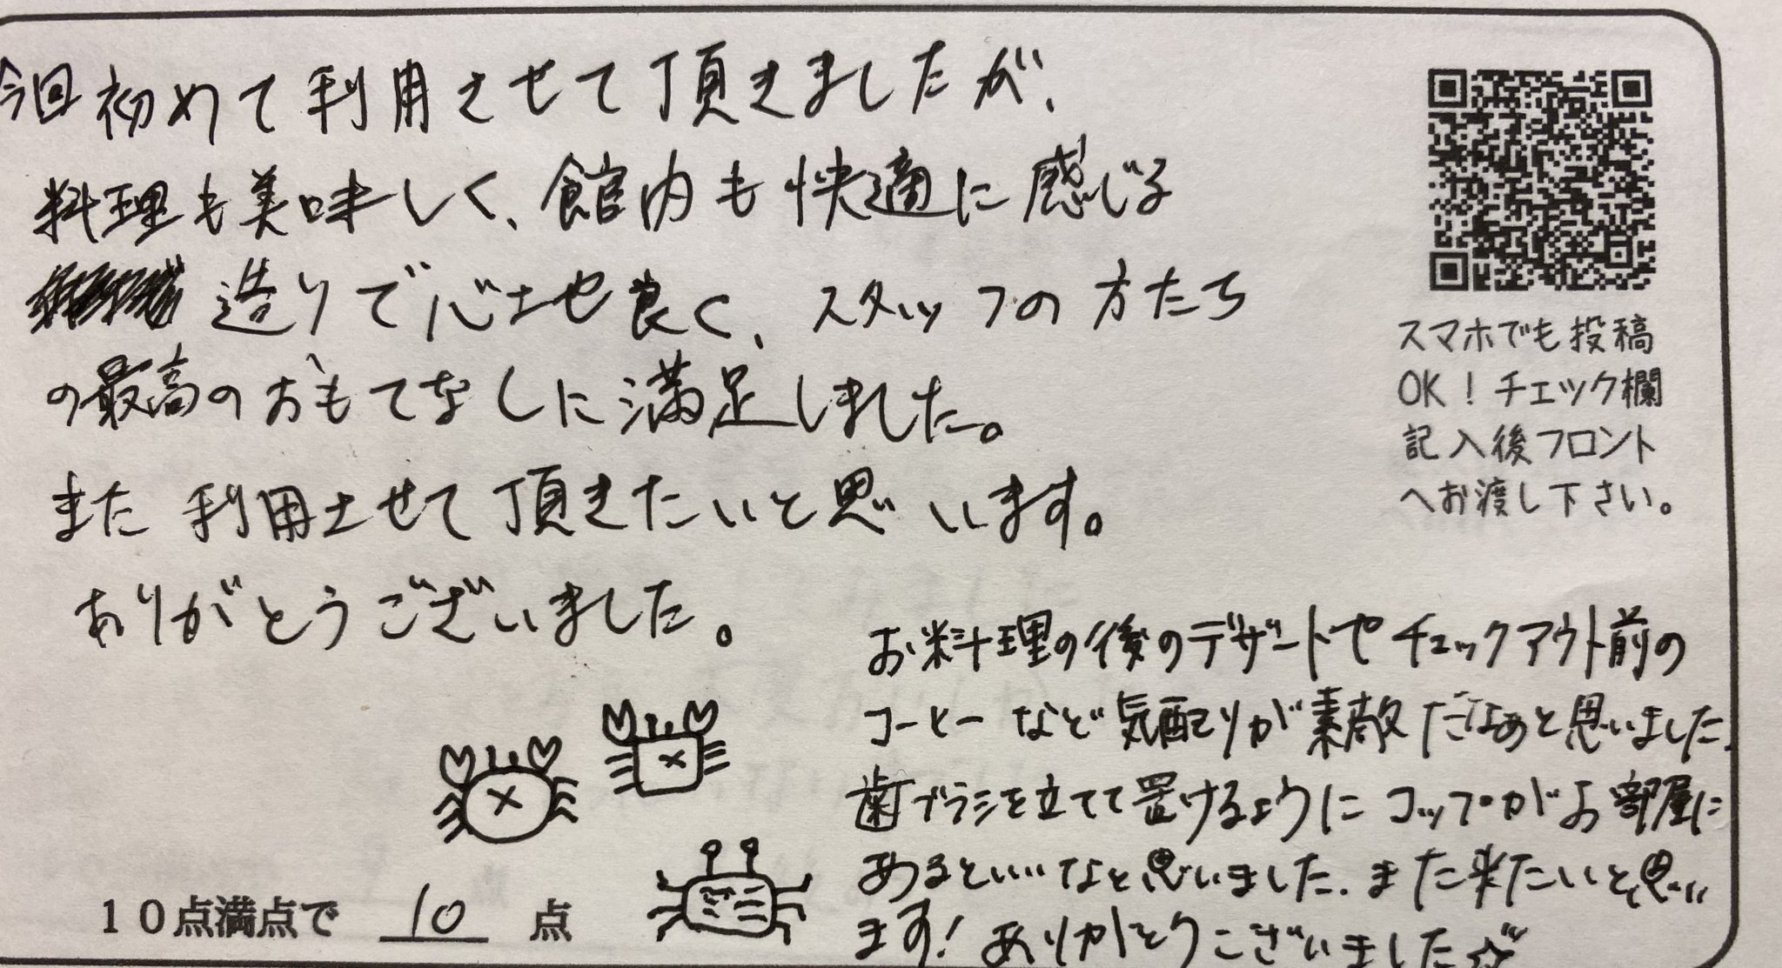 今回初めて利用させて頂きましたが、
料理も美味しく、館内も快適に感じる
造りで心地良く、スタッフの方たち
の最高のおもてなしに満足しました。
また利用させて頂きたいと思います。
ありがとうございました。
スマホでも投稿
OK！チェック欄
記入後フロント
へお渡し下さい。
お料理の後のデザートやチェックアウト前の
コーヒーなど気配りが素敵だなぁと思いました。
歯ブラシを立てて置けるようにコップがお部屋に
あるといいなと思いました。また来たいと思い
ます！ありがとうございました☆
10点満点で 10 点